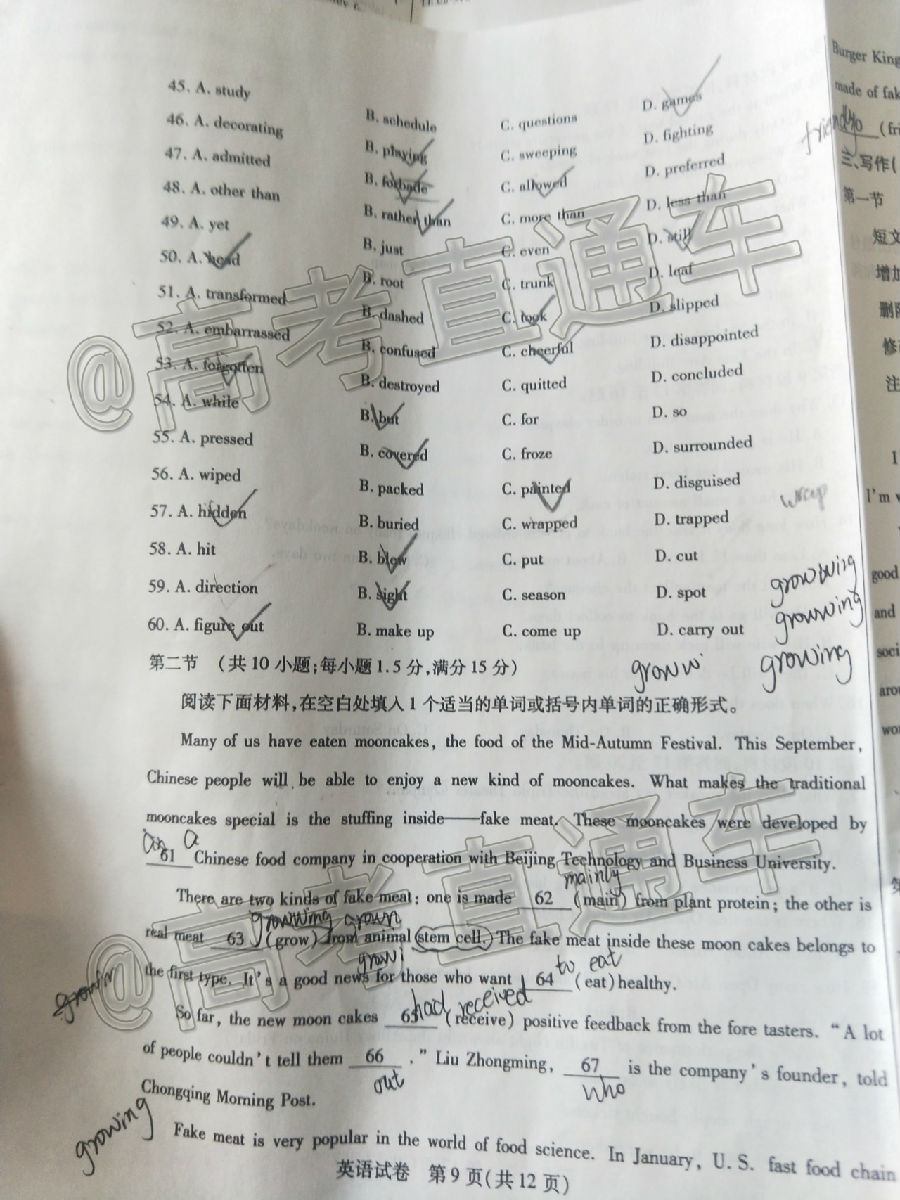 45. A. study B. schedule C. questions D. games
46. A. decorating B. playing C. sweeping D. fighting
47. A. admitted B. forbade C. allowed D. preferred
48. A. other than B. rather than C. more than D. less than
49. A. yet B. just C. even D. still
50. A. head B. root C. trunk D. leaf
51. A. transformed B. dashed C. took D. slipped
52. A. embarrassed B. confused C. cheerful D. disappointed
53. A. forgotten B. destroyed C. quitted D. concluded
54. A. while B. but C. for D. so
55. A. pressed B. covered C. froze D. surrounded
56. A. wiped B. packed C. painted D. disguised
wrap
57. A. hidden B. buried C. wrapped D. trapped
58. A. hit B. blow C. put D. cut
59. A. direction B. sight C. season D. spot
growwing
growwing
60. A. figure out B. make up C. come up D. carry out
growwi growing
第二节 (共10小题;每小题1.5分,满分15分)
阅读下面材料,在空白处填入1个适当的单词或括号内单词的正确形式。
Many of us have eaten mooncakes, the food of the Mid-Autumn Festival. This September,
Chinese people will be able to enjoy a new kind of mooncakes. What makes the traditional
mooncakes special is the stuffing inside——fake meat. These mooncakes were developed by
a
61 Chinese food company in cooperation with Beijing Technology and Business University.
mainly
There are two kinds of fake meat: one is made 62 (main) from plant protein; the other is
growwing grown
real meat 63 (grow) from animal stem cell. The fake meat inside these moon cakes belongs to
growi to eat
the first type. It's a good news for those who want 64 (eat) healthy.
growin
had received
So far, the new moon cakes 65 (receive) positive feedback from the fore tasters. "A lot
of people couldn't tell them 66 ." Liu Zhongming, 67 is the company's founder, told
out who
Chongqing Morning Post.
growing
Fake meat is very popular in the world of food science. In January, U. S. fast food chain
英语试卷 第9页(共12页)
Burger King
made of fak
friendly
(fri
三、写作(
第一节
短文
增加
删除
修改
注
1
I'm w
good
and
soci
arou
wor
第
@高考直通车
@高考直通车